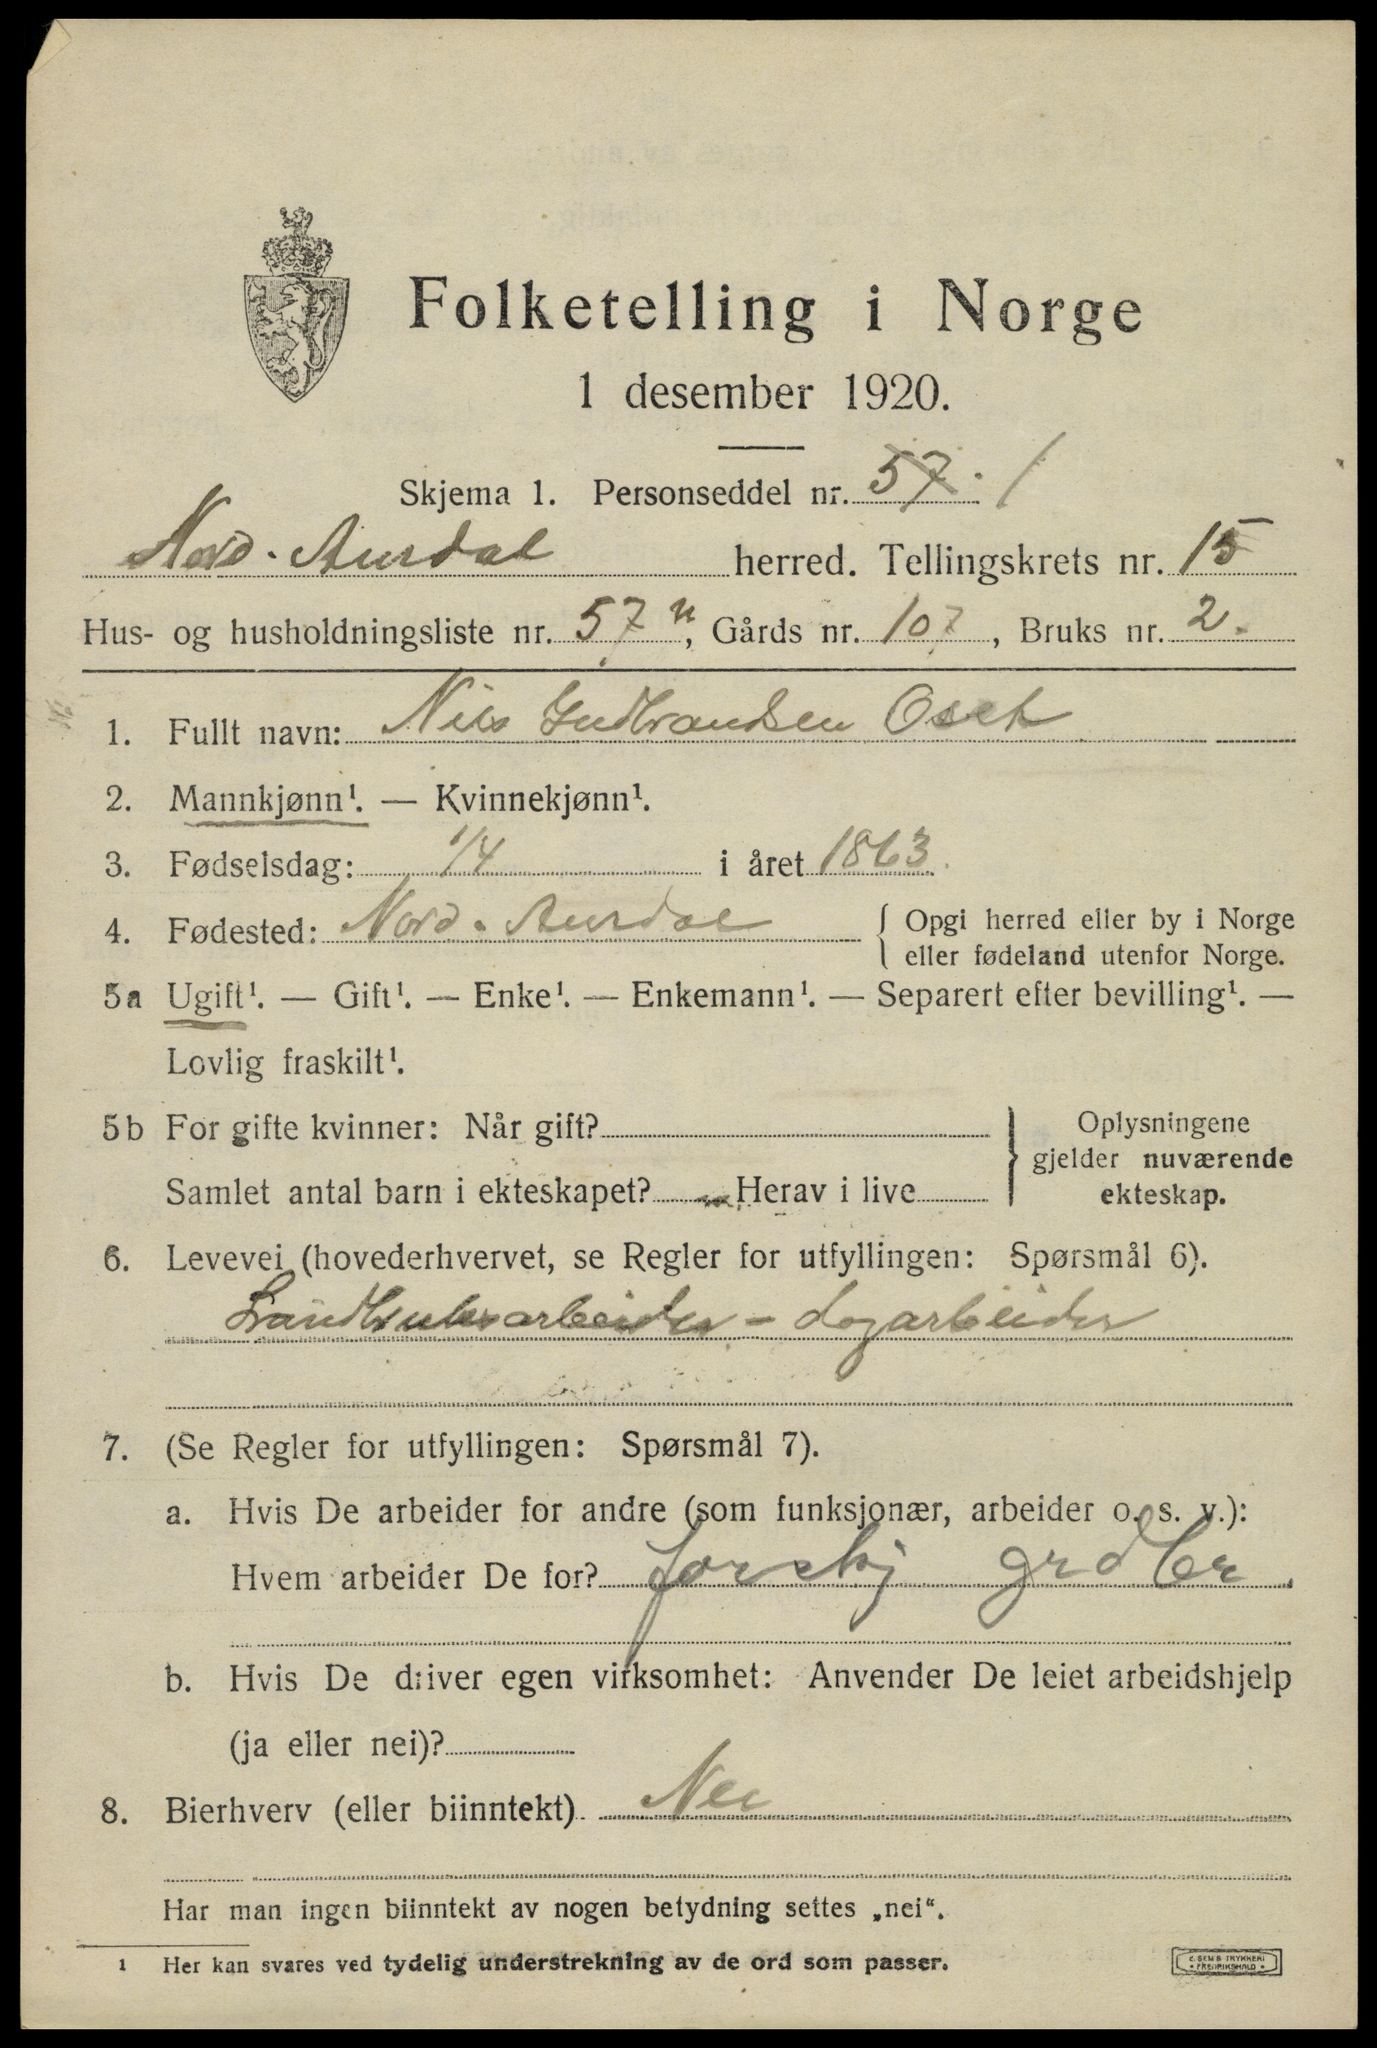 Folketelling i Norge
1 desember 1920.
Skjema 1. Personseddel nr. 57. 1
Nord-Aurdal herred. Tellingskrets nr. 15
Hus- og husholdningsliste nr. 57 n, Gårds nr. 107, Bruks nr. 2.
1. Fullt navn: Nils Gudbrandsen Oset
2. Mannkjønn¹. — Kvinnekjønn¹.
3. Fødselsdag: 1/4 i året 1863.
4. Fødested: Nord-Aurdal { Opgi herred eller by i Norge
eller fødeland utenfor Norge.
5a Ugift¹. — Gift¹. — Enke¹. — Enkemann¹. — Separert efter bevilling¹. —
Lovlig fraskilt¹.
5b For gifte kvinner: Når gift?
Samlet antal barn i ekteskapet? Herav i live
} Oplysningene
gjelder nuværende
ekteskap.
6. Levevei (hovederhvervet, se Regler for utfyllingen: Spørsmål 6).
Landbruksarbeider - dagarbeider
7. (Se Regler for utfyllingen: Spørsmål 7).
a. Hvis De arbeider for andre (som funksjonær, arbeider o. s. v.):
Hvem arbeider De for? forskj grdbr
b. Hvis De driver egen virksomhet: Anvender De leiet arbeidshjelp
(ja eller nei)?
8. Bierhverv (eller biinntekt) Nei
Har man ingen biinntekt av nogen betydning settes „nei“.
1 Her kan svares ved tydelig understrekning av de ord som passer.
E. SEM'S TRYKKERI
• FREDRIKSHALD •